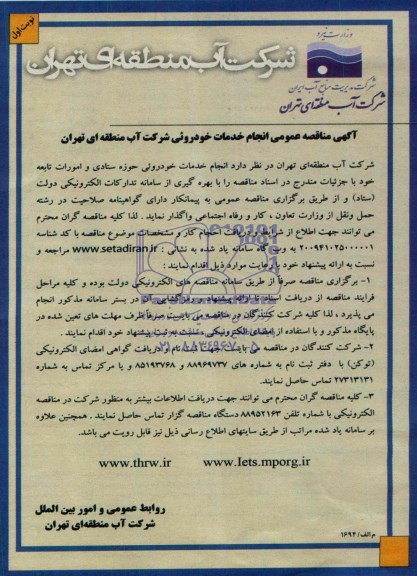 نوبت اول
وزارت نیرو
شرکت مدیریت منابع آب ایران
شرکت آب منطقه‌ای تهران
شرکت آب منطقه ای تهران
آگهی مناقصه عمومی انجام خدمات خودروئی شرکت آب منطقه ای تهران
شرکت آب منطقه‌ای تهران در نظر دارد انجام خدمات خودروئی حوزه ستادی و امورات تابعه
خود با جزئیات مندرج در اسناد مناقصه را با بهره گیری از سامانه تدارکات الکترونیکی دولت
(ستاد) و از طریق برگزاری مناقصه عمومی به پیمانکار دارای گواهینامه صلاحیت در رشته
حمل ونقل از وزارت تعاون ، کار و رفاه اجتماعی واگذار نماید . لذا کلیه مناقصه گران محترم
می توانند جهت اطلاع از شرایط و دریافت حجام کار و مشخصات موضوع مناقصه با کد شناسه
۲۰۰۹۴۱۰۲۵۰۰۰۰۰۱ به وب گاه سامانه یاد شده به نشانی : www.setadiran.ir مراجعه و
نسبت به ارائه پیشنهاد خود با رعایت موارد ذیل اقدام نمایند :
۱- برگزاری مناقصه صرفاً از طریق سامانه مناقصه های الکترونیکی دولت بوده و کلیه مراحل
فرایند مناقصه از دریافت اسناد تا ارائه پیشنهاد و بازگشایی آن در بستر سامانه مذکور انجام
می پذیرد ، لذا کلیه شرکت کنندگان در مناقصه می بایست صرفاً ظرف مهلت های تعیین شده در
پایگاه مذکور و با استفاده از امضای الکترونیکی ، نسبت به ثبت پیشنهاد خود اقدام نمایند .
۲- شرکت کنندگان در مناقصه می بایست جهت ثبت نام و دریافت گواهی امضای الکترونیکی
(توکن) با دفتر ثبت نام به شماره های ۸۸۹۶۹۷۳۷ و ۸۵۱۹۳۷۶۸ و یا مرکز تماس به شماره
۲۷۳۱۳۱۳۱ تماس حاصل نمایند.
۳- کلیه مناقصه گران محترم می توانند جهت دریافت اطلاعات بیشتر به منظور شرکت در مناقصه
الکترونیکی با شماره تلفن ۸۸۹۵۲۱۶۳ دستگاه مناقصه گزار تماس حاصل نمایند . همچنین علاوه
بر سامانه یاد شده مراتب از طریق سایتهای اطلاع رسانی ذیل نیز قابل رویت می باشد.
www.thrw.ir www.Iets.mporg.ir
روابط عمومی و امور بین الملل
شرکت آب منطقه‌ای تهران
م الف/ ۱۶۹۴